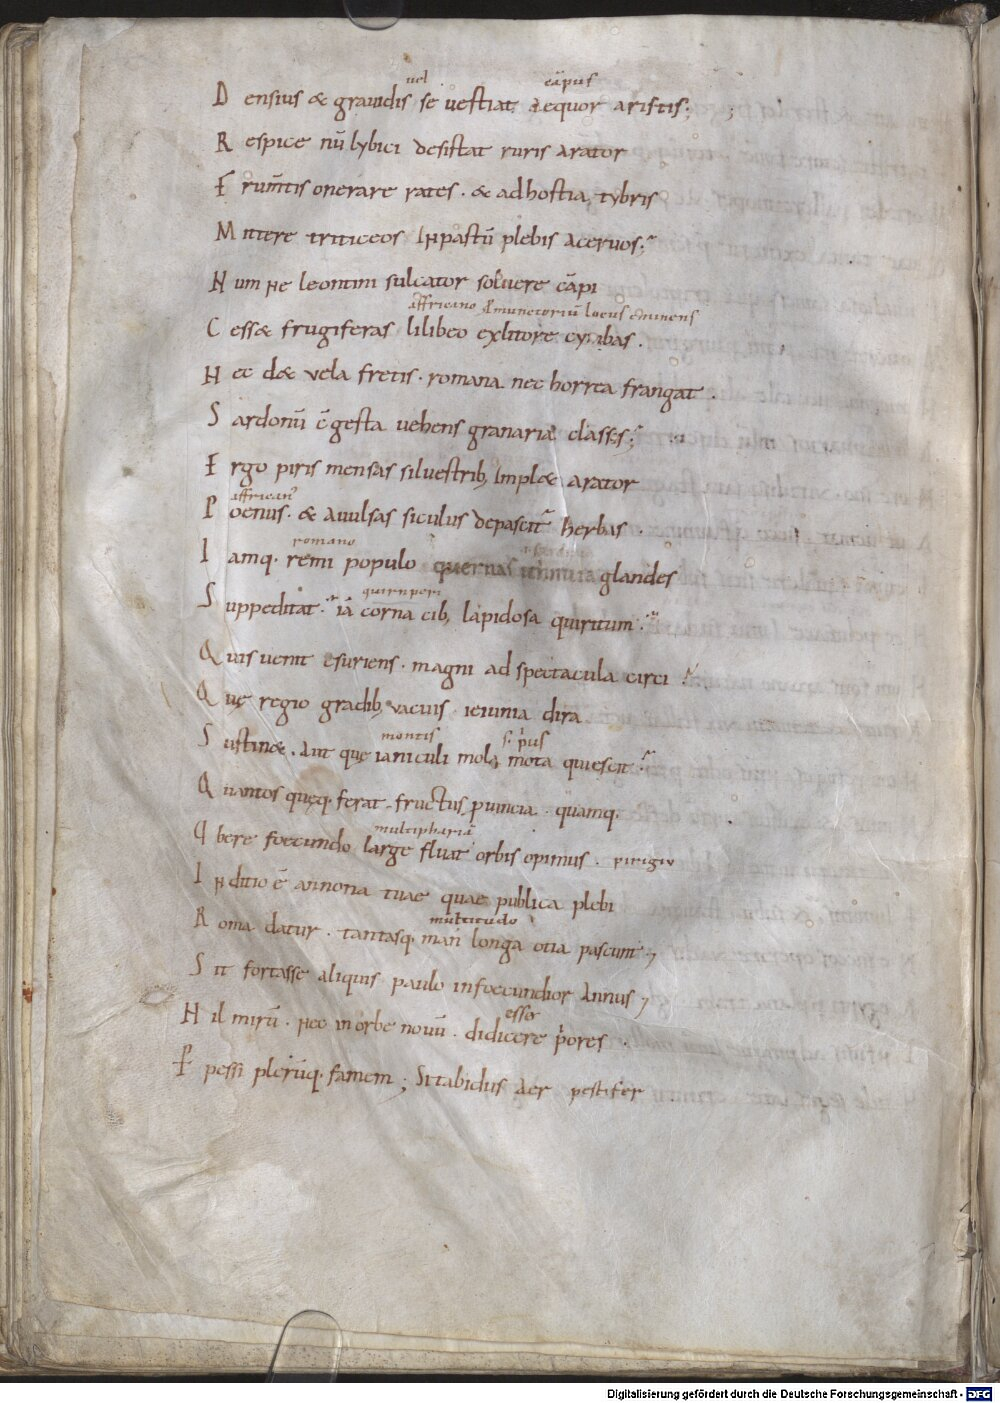 uel cāpus
D ensius & grandis se uestiat Aequor aristis;
R espice nū lybici desistat ruris arator
F rumtis onerare rates . & ad hostia tybris
M ittere triticeos In pastū plebis aceruos;
N um ne leontini sulcator soluere cāpi
affricano munctoriū locus eminens
C essæ frugiferas lilibeo ex litore cymbas .
N ec dæ vela fretis . romana nec horrea frangat .
S ardonū c̄gesta uehens granaria classes;
E rgo piris mensas siluestrib; Implæ arator
affrican'
P oenus . & auulsas siculus depascit' herbas .
romano
I amq. remi populo quernas glandes
S uppeditat . iā corna cib; lapidosa quiritum .
Q uis uenit esuriens . magni ad spectacula circi
Q uę regio gradib; vacuis . ieiunia dira
montis
S ustinæ . Aut quę ianiculi mole; mota quiescit
Q uantos quęq. ferat . fructus puincia . quamq.
multiphariā
large fluat orbis opimus . pingit
I nditio ē annona tuae quae publica plebi
multitudo
R oma datur . tantasq. man' longa otia pascunt;
S it fortasse aliquis paulo infoecundior Annus;
esse
N il mirū . Nec in orbe nouū . didicere p̄ores .
P pessi plerūq. famem ; Si tabidus Aer pestifer
Digitalisierung gefördert durch die Deutsche Forschungsgemeinschaft - DFG